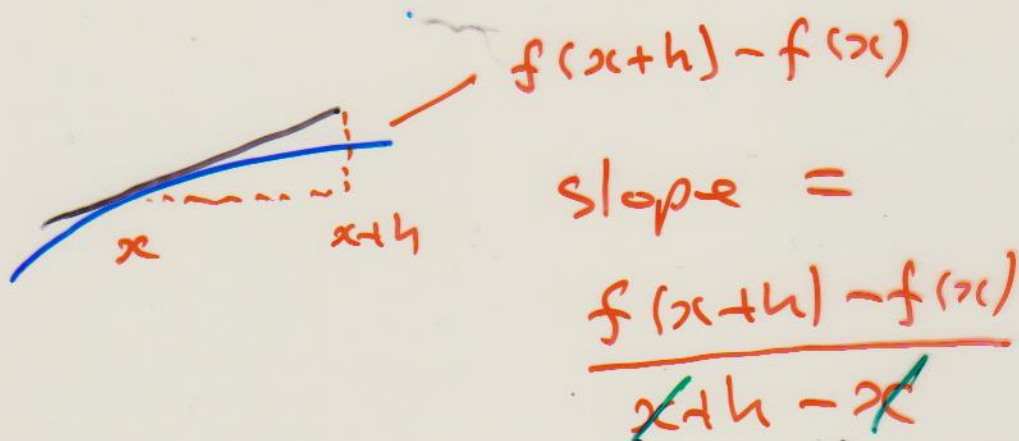 f(x+h) - f(x)
x
x+h
slope =
f(x+h) - f(x)
x+h - x